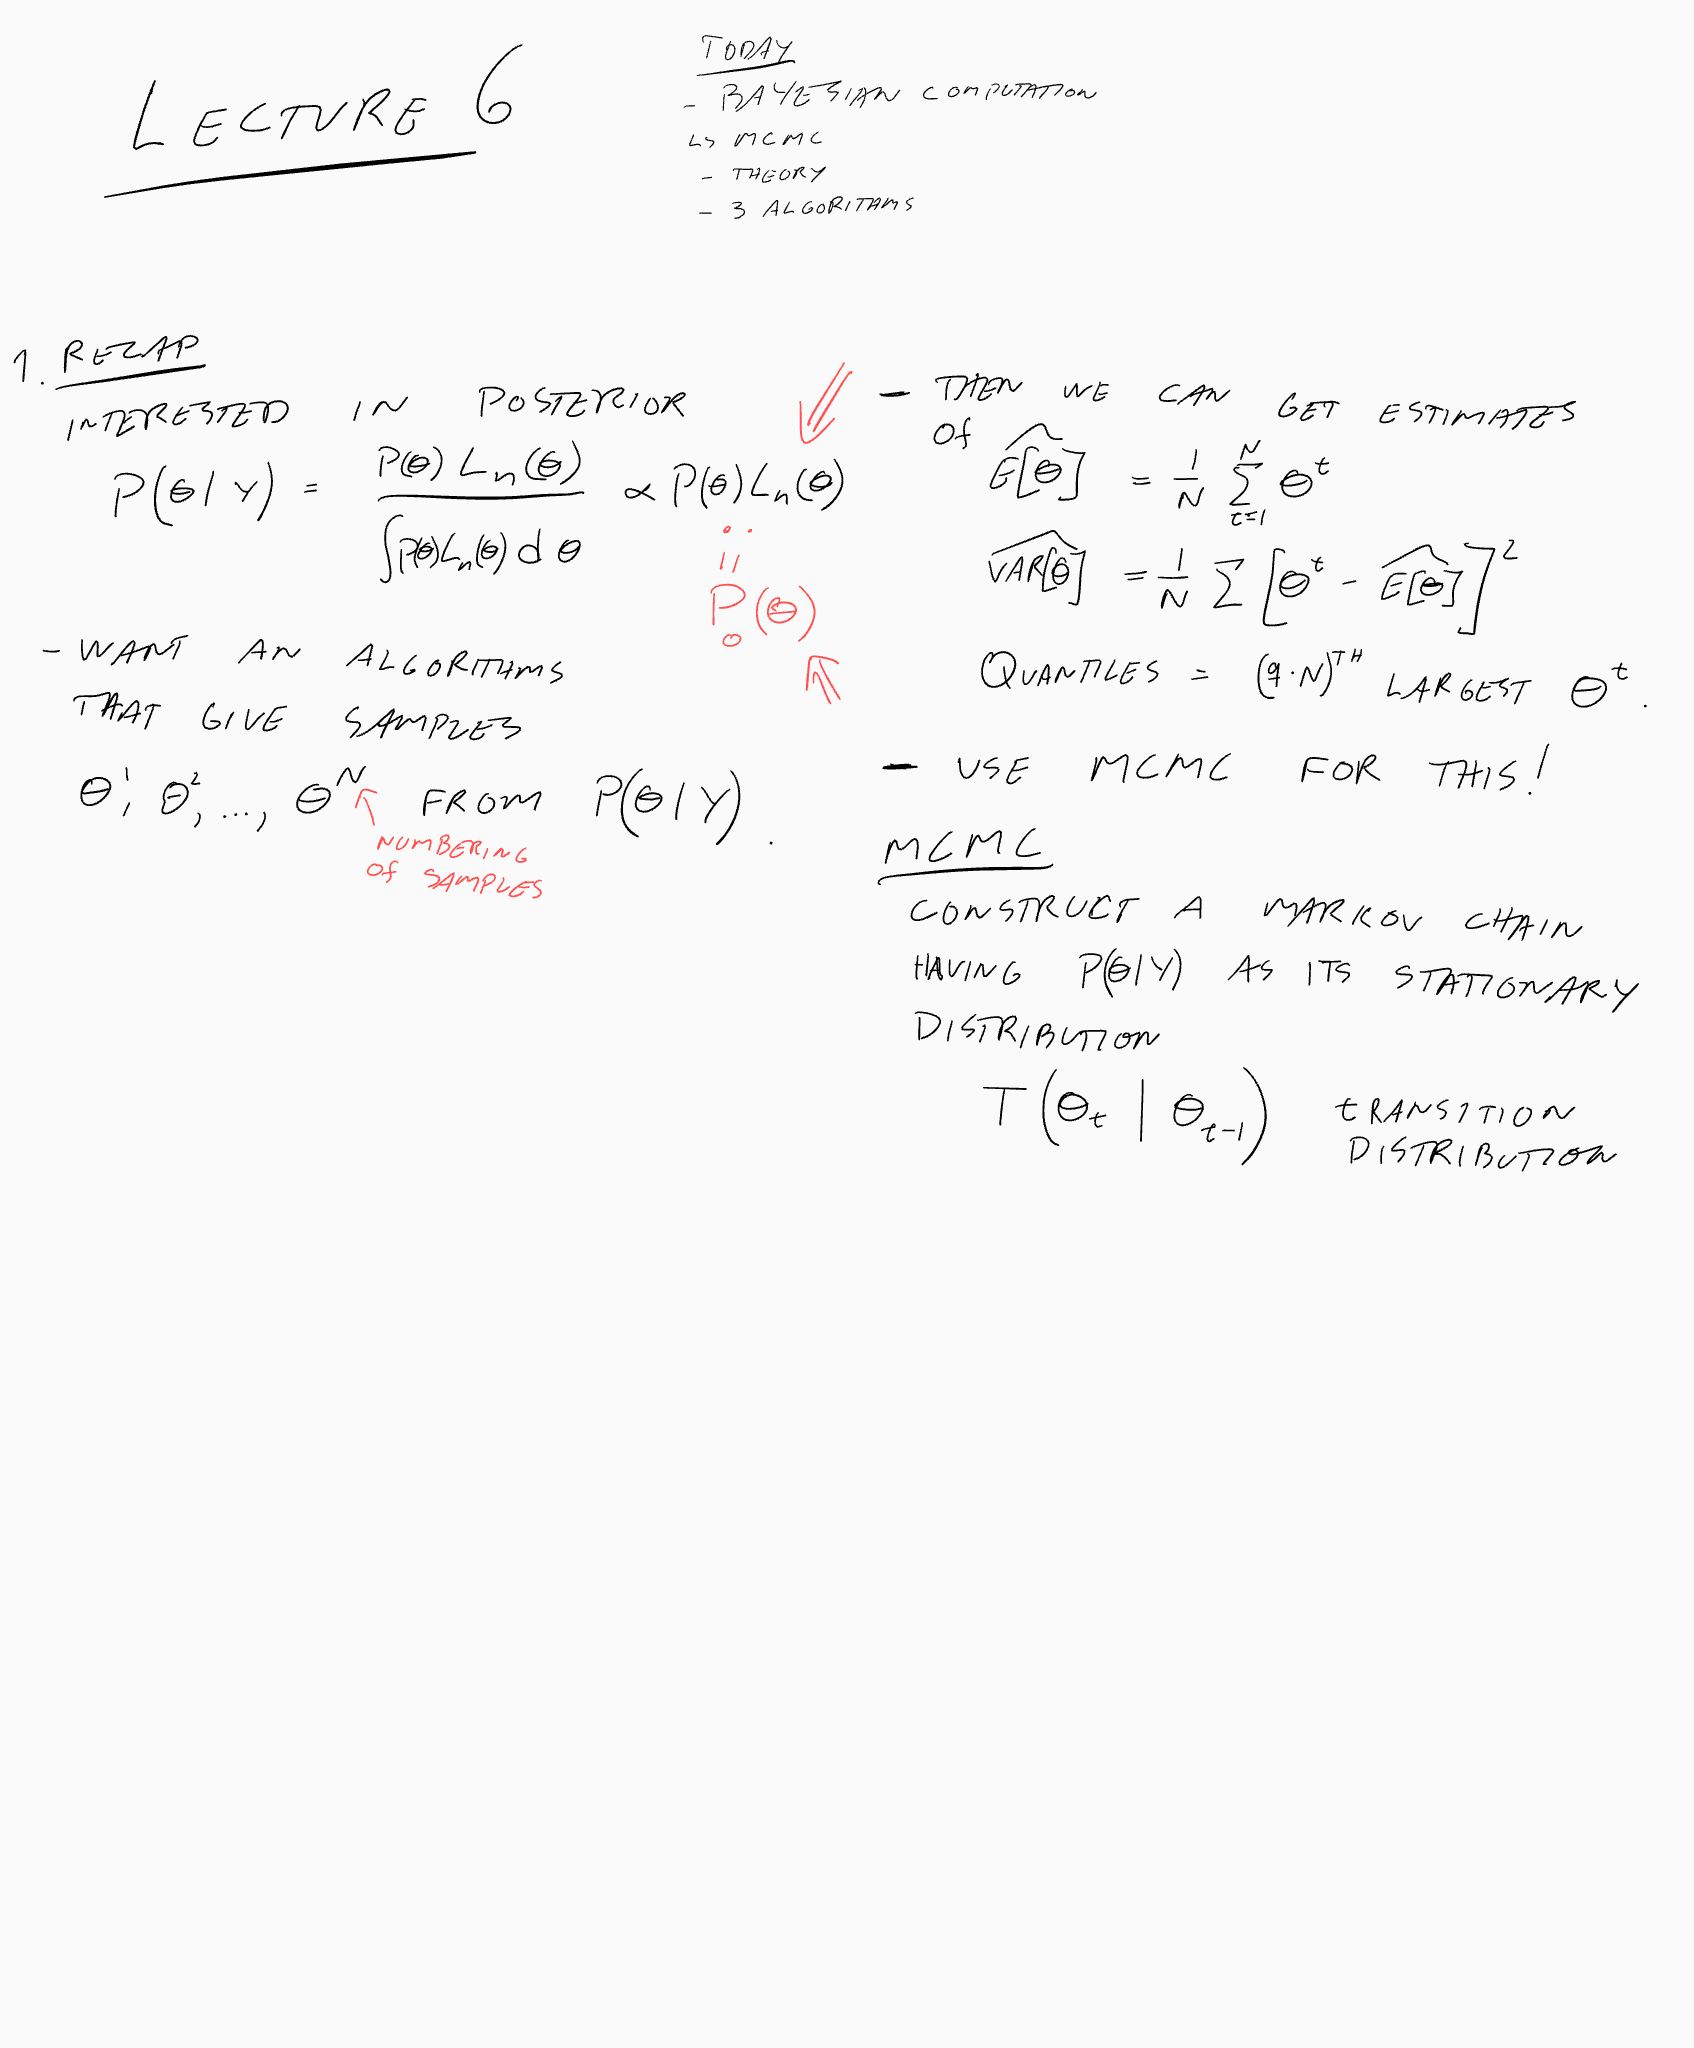 LECTURE 6
TODAY
- BAYESIAN COMPUTATION
↳ MCMC
- THEORY
- 3 ALGORITHMS
1. RECAP
INTERESTED IN POSTERIOR
P(θ|Y) = P(θ) Lₙ(θ) / ∫P(θ)Lₙ(θ) dθ ∝ P(θ)Lₙ(θ)
..
=
P₀(θ)
- WANT AN ALGORITHMS
THAT GIVE SAMPLES
θ¹, θ², ..., θᴺ FROM P(θ|Y).
NUMBERING
OF SAMPLES
- THEN WE CAN GET ESTIMATES
OF
Ê[θ] = 1/N Σ_{t=1}^{N} θᵗ
VAR̂[θ] = 1/N Σ [θᵗ - Ê[θ]]²
QUANTILES = (q·N)ᵀᴴ LARGEST θᵗ.
- USE MCMC FOR THIS!
MCMC
CONSTRUCT A MARKOV CHAIN
HAVING P(θ|Y) AS ITS STATIONARY
DISTRIBUTION
T(θₜ | θₜ₋₁) TRANSITION
DISTRIBUTION